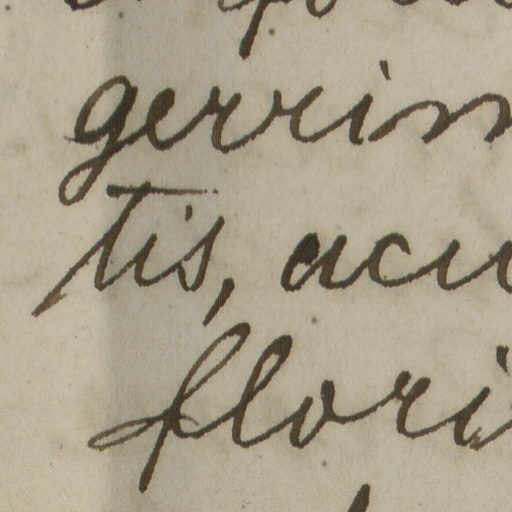 gerrim
tis, acu
flori